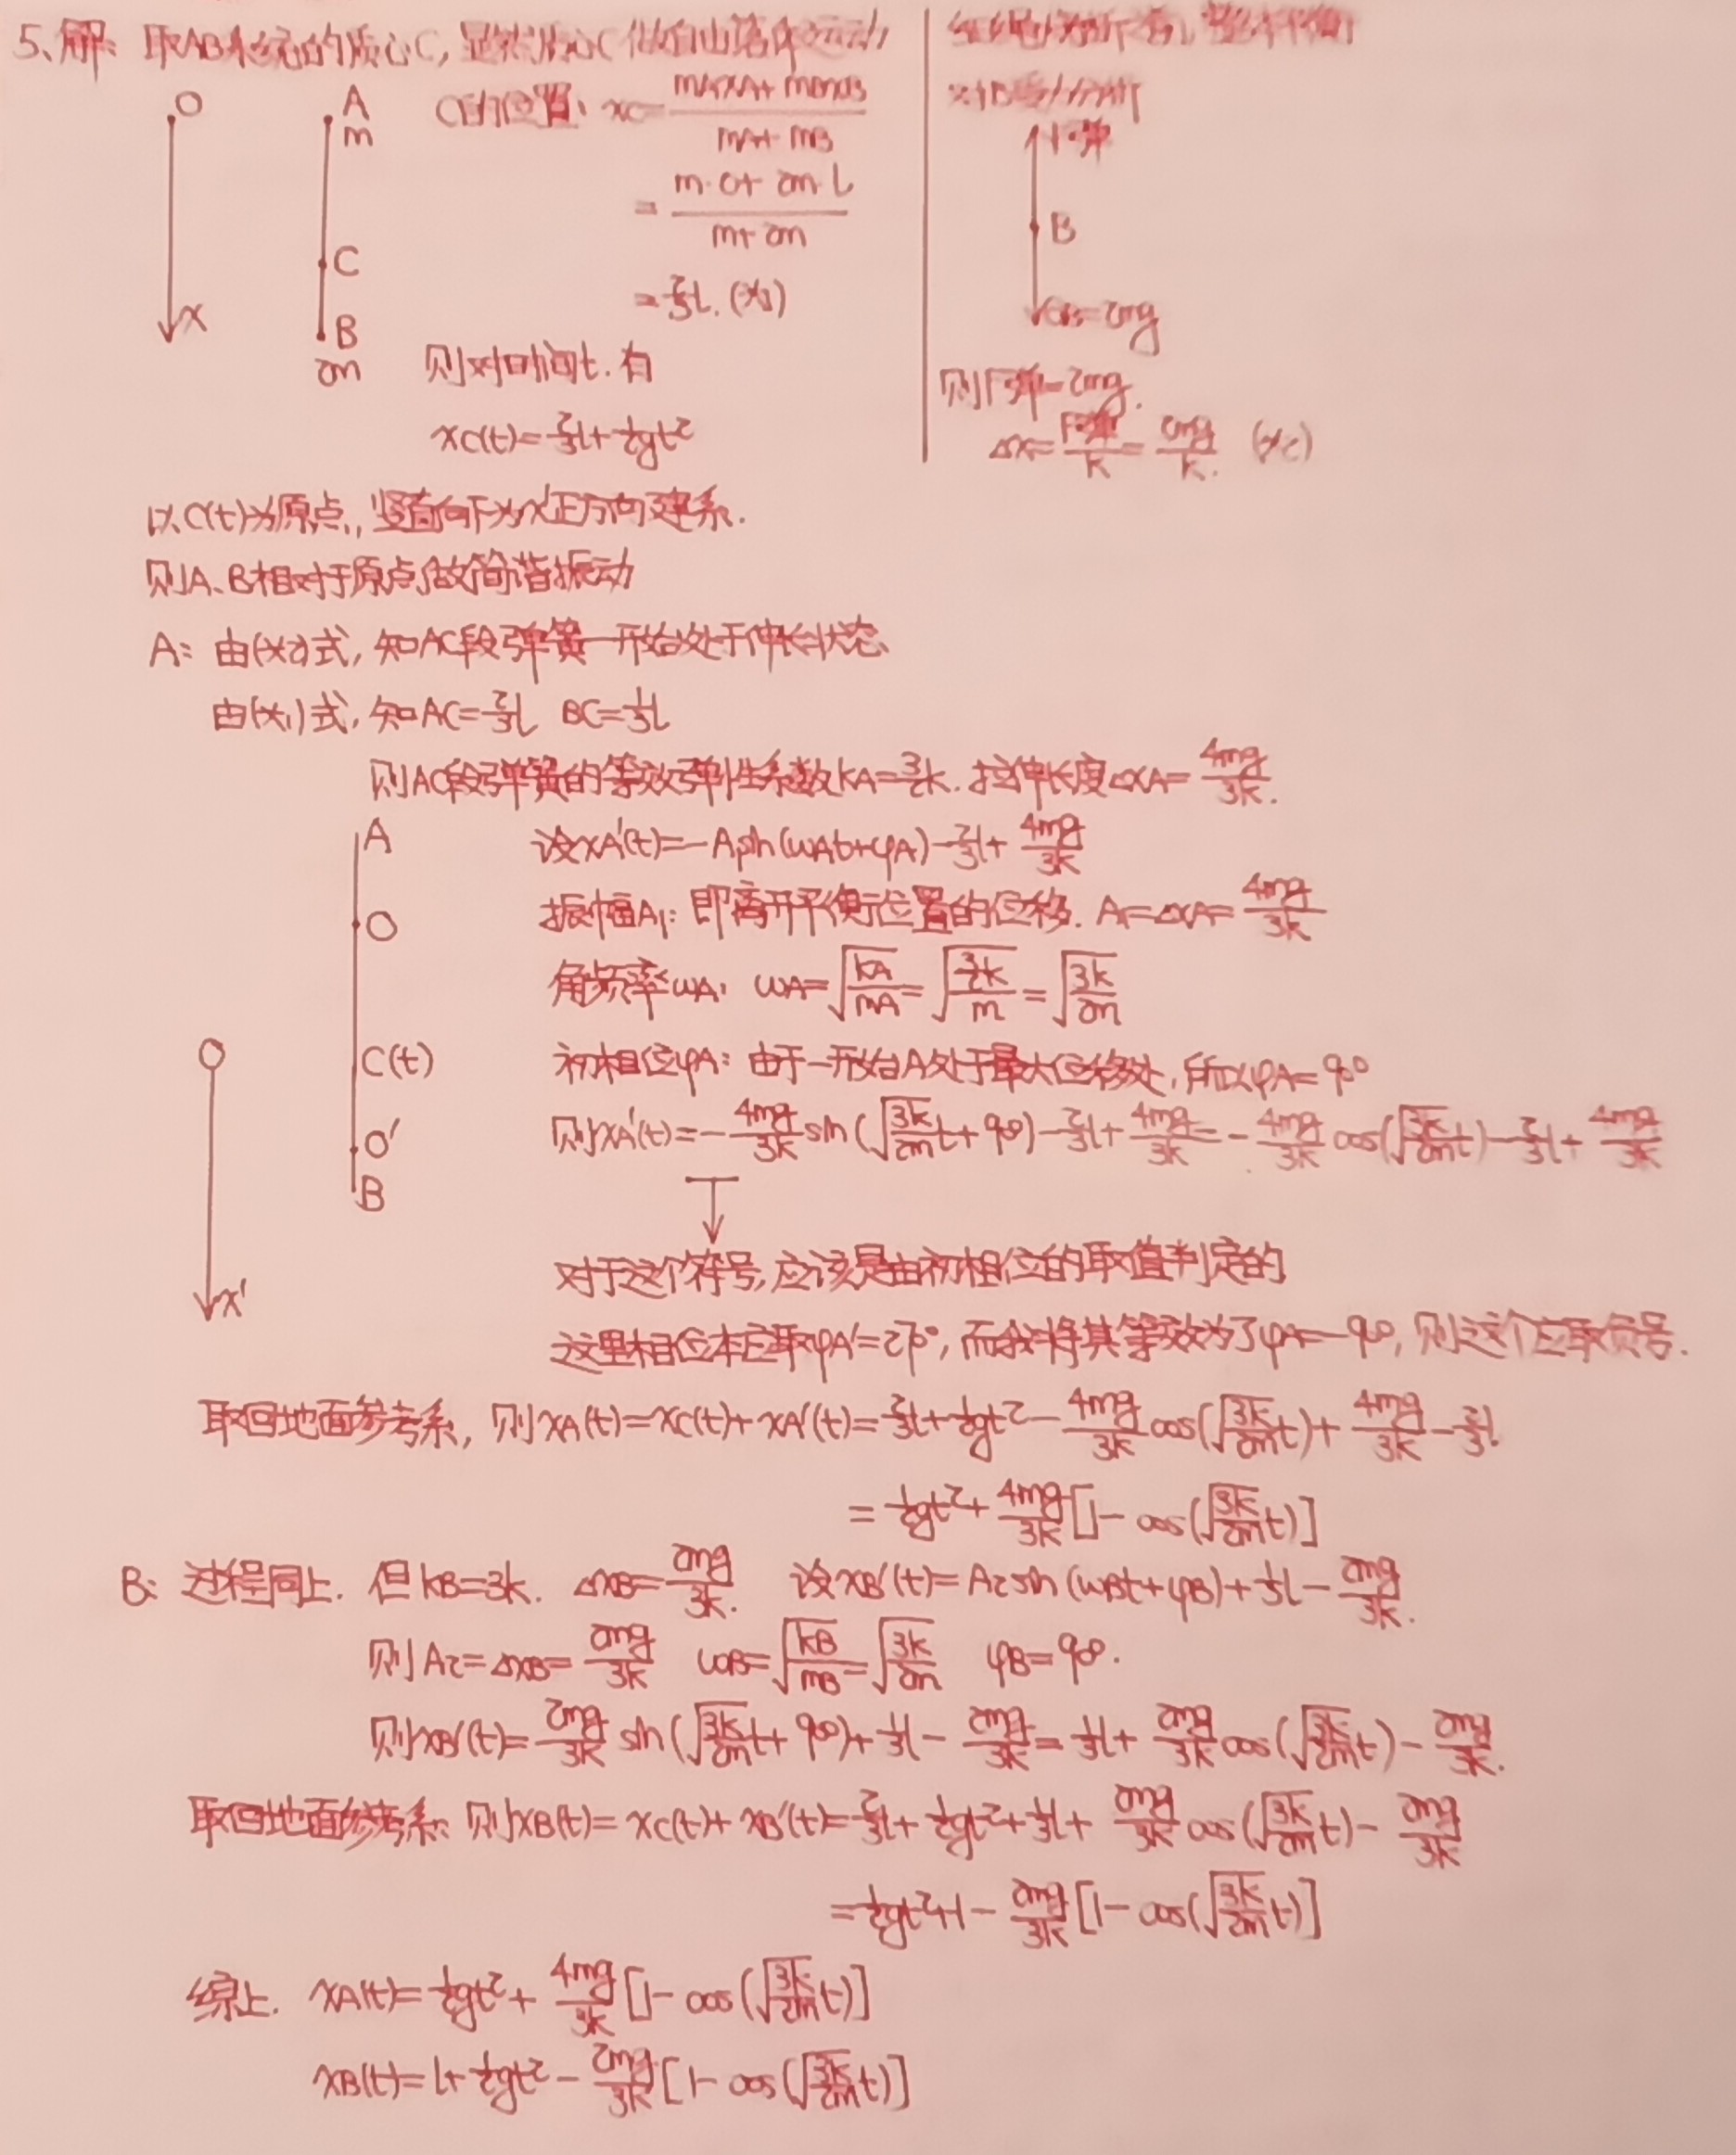 5、解: 取AB系统的质心C, 显然质心C做自由落体运动
O
A
m
C
B
2m
x
C的位置: xC=\frac{mAxA+mBxB}{mA+mB}
=\frac{m·0+2m·L}{m+2m}
=\frac{2}{3}L. (*1)
则对时间t. 有
xC(t)=\frac{2}{3}l+\frac{1}{2}gt²
对B受力分析
F弹
B
GB=2mg
则F弹=2mg.
Δx=\frac{F弹}{k}=\frac{2mg}{k}. (*2)
以C(t)为原点, 竖直向下为x'正方向建系.
则A、B相对于原点做简谐振动
A: 由(*2)式, 知AC段弹簧一开始处于伸长状态
由(*1)式, 知AC=\frac{2}{3}l BC=\frac{1}{3}l
则AC段弹簧的等效弹性系数kA=\frac{3}{2}k. 拉伸长度ΔxA=\frac{4mg}{3k}.
A
O
C(t)
O'
B
O
x'
设xA'(t)=-A₁sin(ωAt+φA)-\frac{2}{3}l+\frac{4mg}{3k}
振幅A₁: 即离开平衡位置的位移. A₁=ΔxA=\frac{4mg}{3k}
角频率ωA: ωA=\sqrt{\frac{kA}{mA}}=\sqrt{\frac{\frac{3}{2}k}{m}}=\sqrt{\frac{3k}{2m}}
初相位φA: 由于一开始A处于最大位移处, 所以φA=90°
则xA'(t)=-\frac{4mg}{3k}sin(\sqrt{\frac{3k}{2m}}t+90°)-\frac{2}{3}l+\frac{4mg}{3k}=-\frac{4mg}{3k}cos(\sqrt{\frac{3k}{2m}}t)-\frac{2}{3}l+\frac{4mg}{3k}
对于这个符号, 应该是由初相位的取值判定的
这里相位本应取φA'=270°, 而我将其等效为了φA=90°, 则这个应取负号.
取回地面参考系, 则xA(t)=xC(t)+xA'(t)=\frac{2}{3}l+\frac{1}{2}gt²-\frac{4mg}{3k}cos(\sqrt{\frac{3k}{2m}}t)+\frac{4mg}{3k}-\frac{2}{3}l
=\frac{1}{2}gt²+\frac{4mg}{3k}[1-cos(\sqrt{\frac{3k}{2m}}t)]
B: 过程同上. 但kB=3k. ΔxB=\frac{2mg}{3k}. 设xB'(t)=A₂sin(ωBt+φB)+\frac{1}{3}l-\frac{2mg}{3k}.
则A₂=ΔxB=\frac{2mg}{3k} ωB=\sqrt{\frac{kB}{mB}}=\sqrt{\frac{3k}{2m}} φB=90°.
则xB'(t)=\frac{2mg}{3k}sin(\sqrt{\frac{3k}{2m}}t+90°)+\frac{1}{3}l-\frac{2mg}{3k}=\frac{1}{3}l+\frac{2mg}{3k}cos(\sqrt{\frac{3k}{2m}}t)-\frac{2mg}{3k}.
取回地面参考系: 则xB(t)=xC(t)+xB'(t)=\frac{2}{3}l+\frac{1}{2}gt²+\frac{1}{3}l+\frac{2mg}{3k}cos(\sqrt{\frac{3k}{2m}}t)-\frac{2mg}{3k}
=\frac{1}{2}gt²+l-\frac{2mg}{3k}[1-cos(\sqrt{\frac{3k}{2m}}t)]
综上. xA(t)=\frac{1}{2}gt²+\frac{4mg}{3k}[1-cos(\sqrt{\frac{3k}{2m}}t)]
xB(t)=l+\frac{1}{2}gt²-\frac{2mg}{3k}[1-cos(\sqrt{\frac{3k}{2m}}t)]